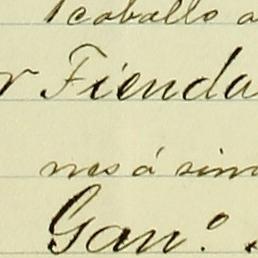 caballo a
r Fienda
nes á sin
Gan.º